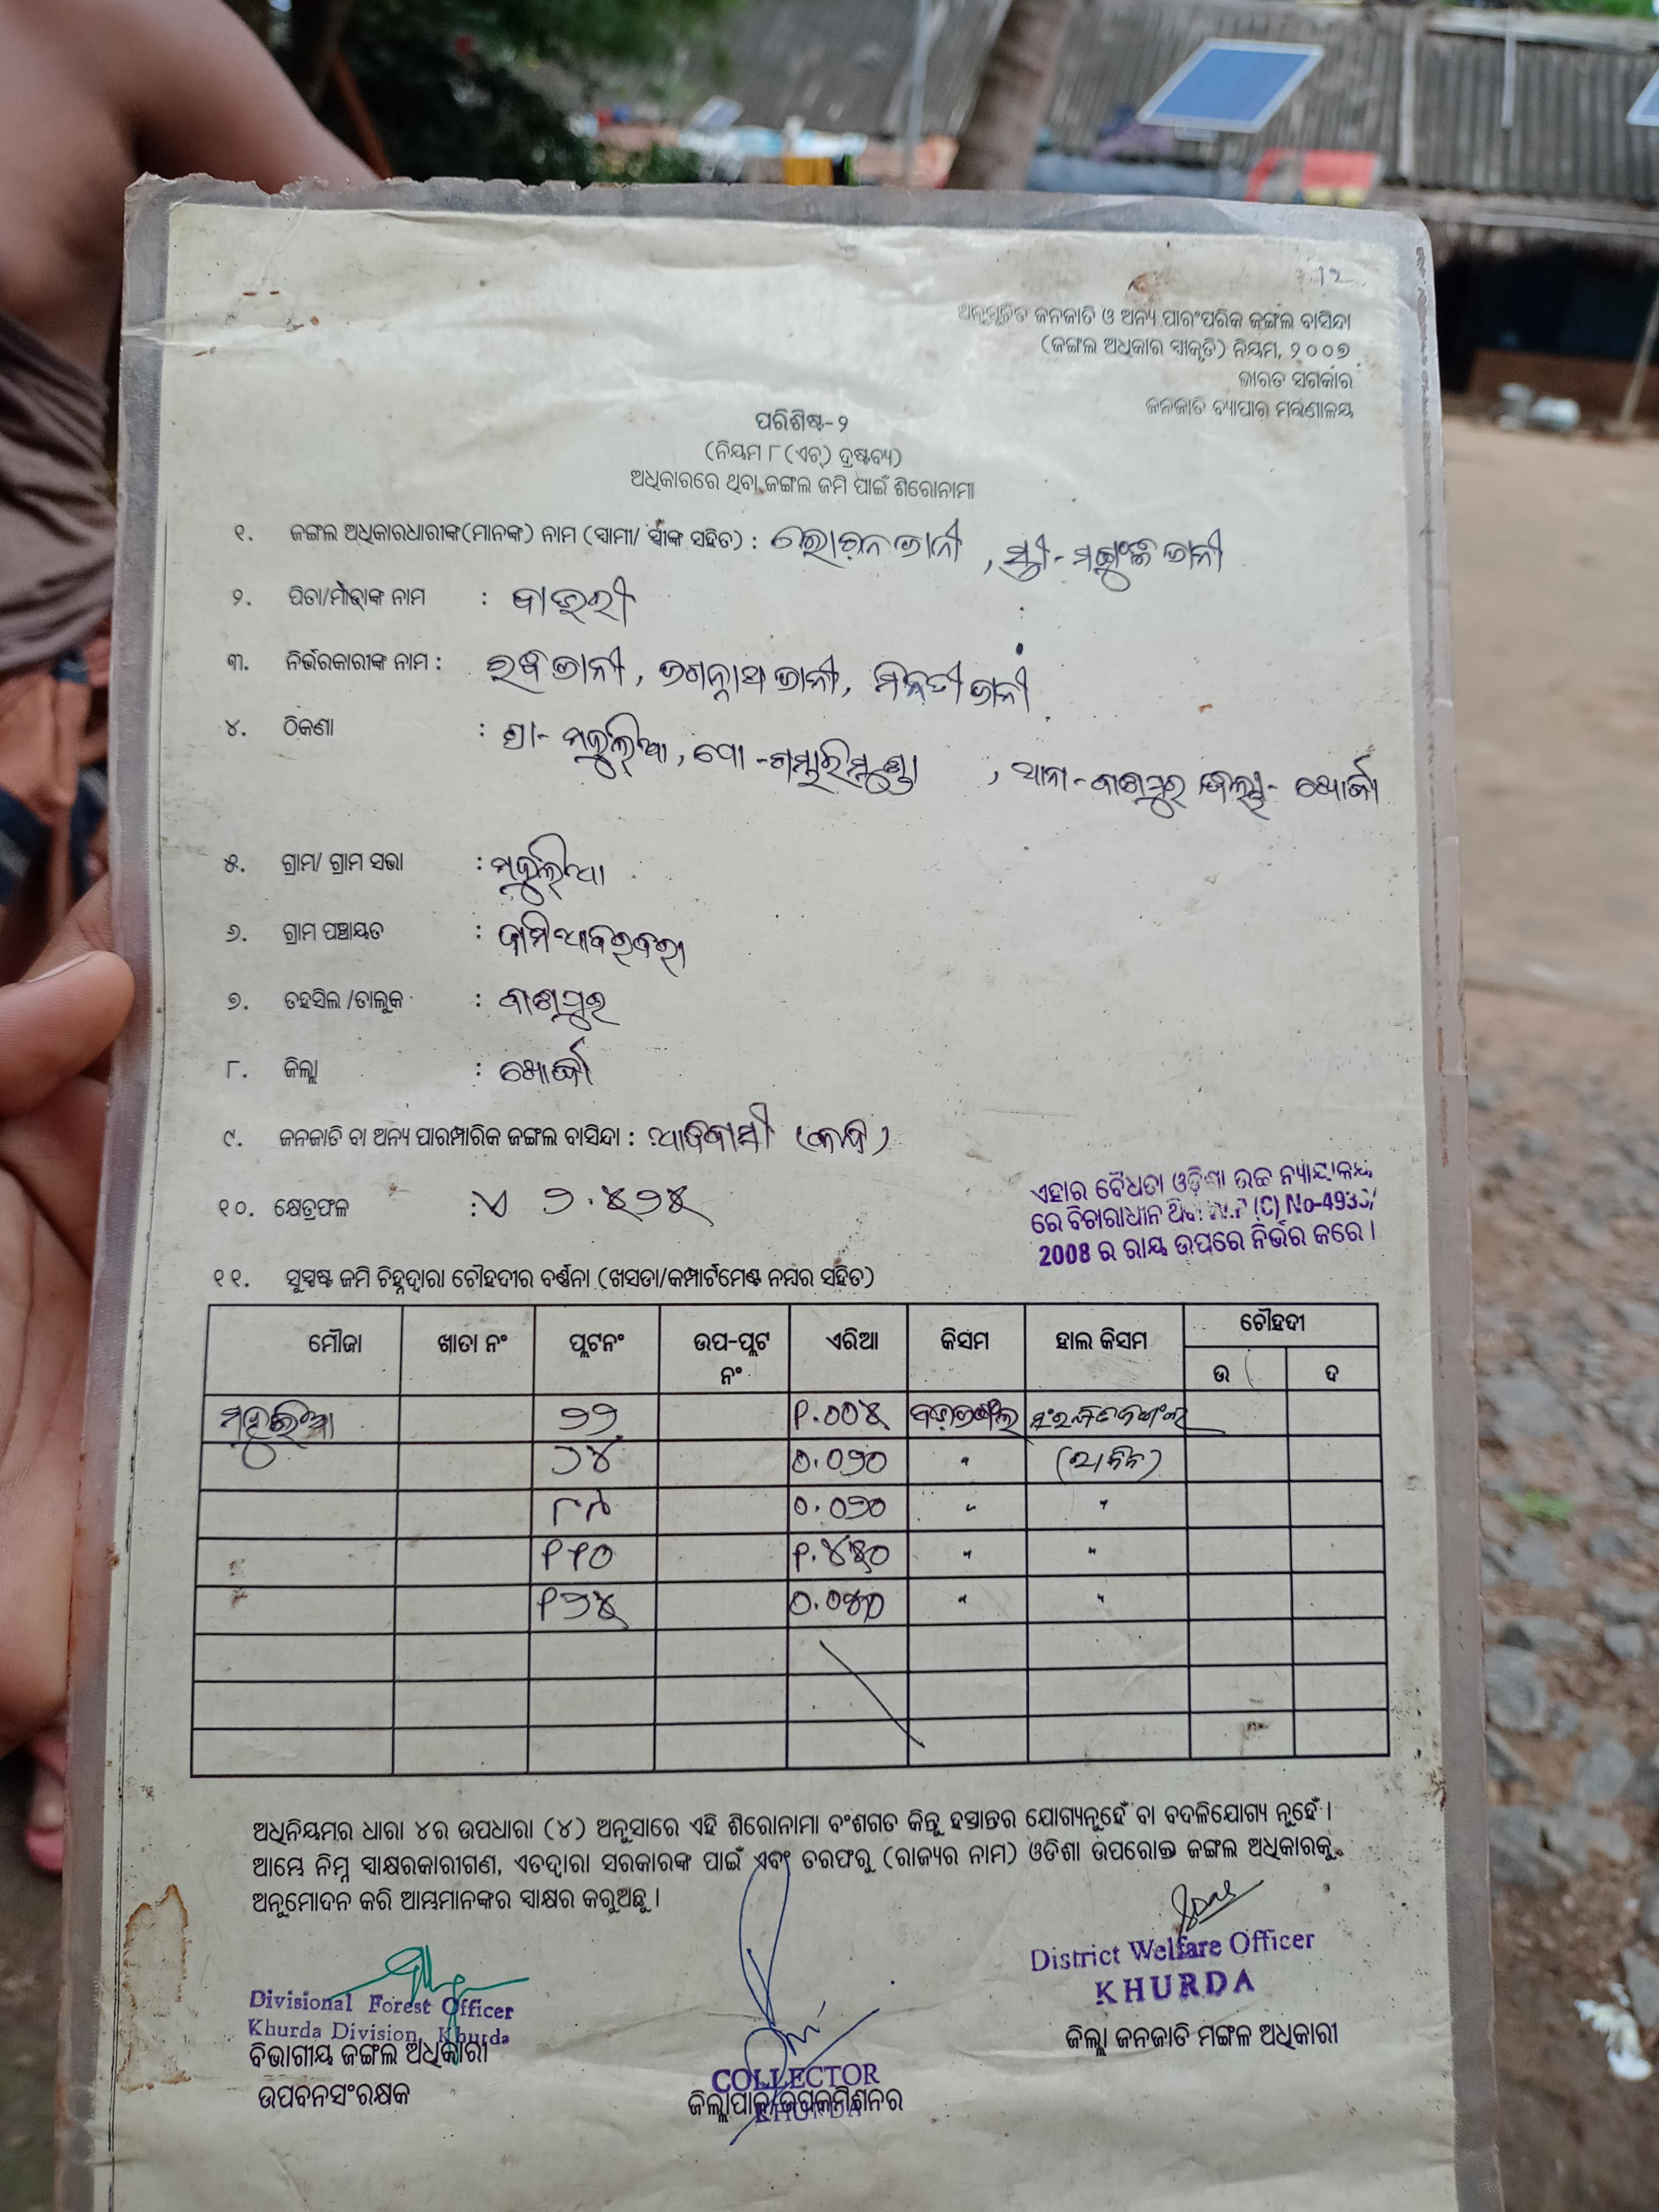 ୧୨
ଅନୁସୂଚିତ ଜନଜାତି ଓ ଅନ୍ୟ ପାରଂପରିକ ଜଙ୍ଗଲ ବାସିନ୍ଦା
(ଜଙ୍ଗଲ ଅଧିକାର ସ୍ୱୀକୃତି) ନିୟମ, ୨୦୦୭
ଭାରତ ସରକାର
ଜନଜାତି ବ୍ୟାପାର ମନ୍ତ୍ରଣାଳୟ
ପରିଶିଷ୍ଟ-୨
(ନିୟମ ୮(ଏଚ୍) ଦ୍ରଷ୍ଟବ୍ୟ)
ଅଧିକାରରେ ଥିବା ଜଙ୍ଗଲ ଜମି ପାଇଁ ଶିରୋନାମା
୧. ଜଙ୍ଗଲ ଅଧିକାରଧାରୀଙ୍କ(ମାନଙ୍କ) ନାମ (ସ୍ୱାମୀ/ ସ୍ତ୍ରୀଙ୍କ ସହିତ) : ଜାନୀ , ସ୍ତ୍ରୀ- ଜାନୀ
୨. ପିତା/ମାତାଙ୍କ ନାମ :
୩. ନିର୍ଭରକାରୀଙ୍କ ନାମ : ରବି ଜାନୀ, ଜଗନ୍ନାଥ ଜାନୀ, ମିନତୀ ଜାନୀ
୪. ଠିକଣା : ଗ୍ରା- , ପୋ -ଗମ୍ଭାରିମୁଣ୍ଡା , ଥାନା-ବାଣପୁର ଜିଲ୍ଲା- ଖୋର୍ଦ୍ଧା
୫. ଗ୍ରାମ/ ଗ୍ରାମ ସଭା :
୬. ଗ୍ରାମ ପଞ୍ଚାୟତ :
୭. ତହସିଲ /ତାଲୁକ : ବାଣପୁର
୮. ଜିଲ୍ଲା : ଖୋର୍ଦ୍ଧା
୯. ଜନଜାତି ବା ଅନ୍ୟ ପାରମ୍ପାରିକ ଜଙ୍ଗଲ ବାସିନ୍ଦା : ଆଦିବାସୀ (କନ୍ଧ)
୧୦. କ୍ଷେତ୍ରଫଳ : ଏ ୨.୫୨୫
ଏହାର ବୈଧତା ଓଡ଼ିଶା ଉଚ୍ଚ ନ୍ୟାୟାଳୟ
ରେ ବିଚାରାଧୀନ ଥିବା W.P (C) No-4933/
2008 ର ରାୟ ଉପରେ ନିର୍ଭର କରେ ।
୧୧. ସୁସ୍ପଷ୍ଟ ଜମି ଚିହ୍ନଦ୍ୱାରା ଚୌହଦୀର ବର୍ଣ୍ଣନା (ଖସଡା/କମ୍ପାର୍ଟମେଣ୍ଟ ନମ୍ବର ସହିତ)
ମୌଜା ଖାତା ନଂ ପ୍ଲଟନଂ ଉପ-ପ୍ଲଟ ନଂ ଏରିଆ କିସମ ହାଲ କିସମ ଚୌହଦୀ
ଉ ଦ
୨୨ ୧.୦୦୫
୨୪ ୦.୦୨୦ "
୮୯ ୦.୦୨୦ " "
୧୧୦ " "
୧୨୫ " "
ଅଧିନିୟମର ଧାରା ୪ର ଉପଧାରା (୪) ଅନୁସାରେ ଏହି ଶିରୋନାମା ବଂଶଗତ କିନ୍ତୁ ହସ୍ତାନ୍ତର ଯୋଗ୍ୟନୁହେଁ ବା ବଦଳିଯୋଗ୍ୟ ନୁହେଁ ।
ଆମ୍ଭେ ନିମ୍ନ ସ୍ୱାକ୍ଷରକାରୀଗଣ, ଏତଦ୍ୱାରା ସରକାରଙ୍କ ପାଇଁ ଏବଂ ତରଫରୁ (ରାଜ୍ୟର ନାମ) ଓଡିଶା ଉପରୋକ୍ତ ଜଙ୍ଗଲ ଅଧିକାରକୁ
ଅନୁମୋଦନ କରି ଆମ୍ଭମାନଙ୍କର ସ୍ୱାକ୍ଷର କରୁଅଛୁ ।
Divisional Forest Officer
Khurda Division, Khurda
ବିଭାଗୀୟ ଜଙ୍ଗଲ ଅଧିକାରୀ
ଉପବନସଂରକ୍ଷକ
COLLECTOR
KHURDA
ଜିଲ୍ଲାପାଳ/ଉପକମିଶନର
District Welfare Officer
KHURDA
ଜିଲ୍ଲା ଜନଜାତି ମଙ୍ଗଳ ଅଧିକାରୀ